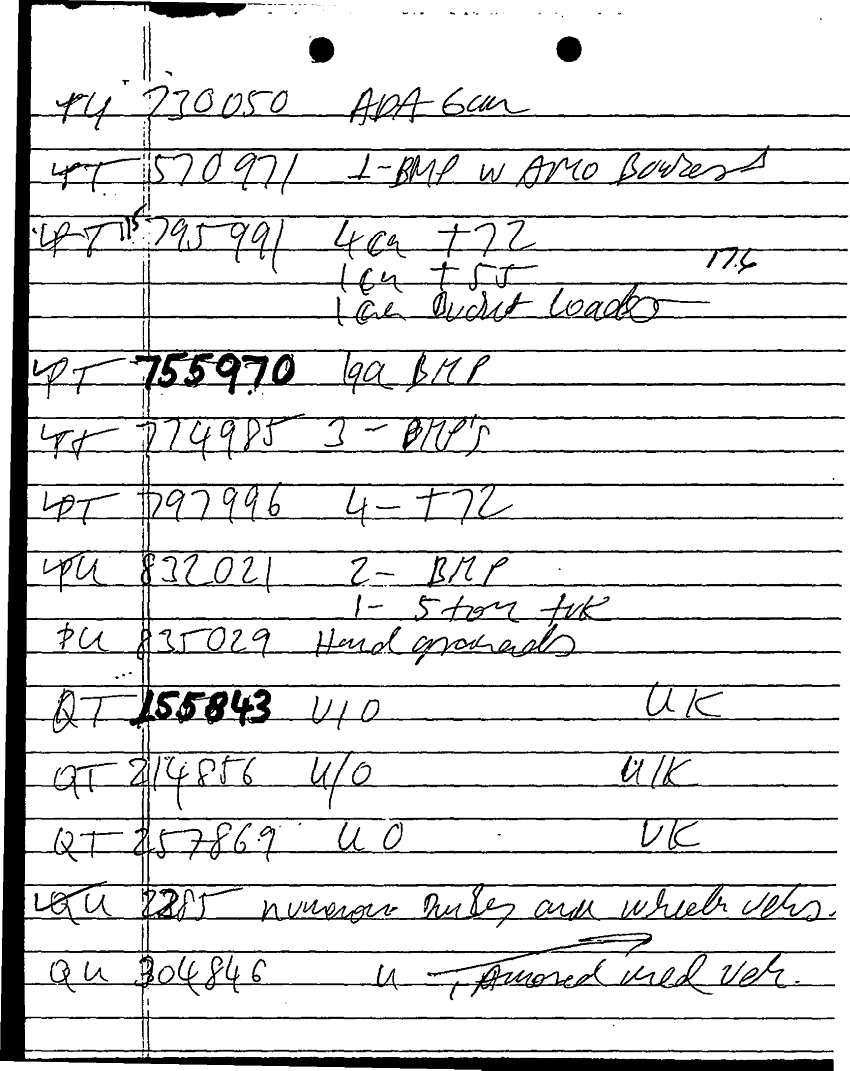 PU 730050 ADA Gun
PT 570971 1-BMP w AMO Bunkers
PT 115 795991 4 ea T72
1 ea T55 17.6
1 ea Bucket Loader
PT 755970 1ea BMP
PT 774985 3 - BMP's
PT 797996 4 - T72
PU 832021 2 - BMP
1 - 5 ton trk
PU 835029 Hand
QT 155843 U/O UK
QT 214856 U/O U/K
QT 257869 U O UK
QU 2285 numerous and vehs.
QU 304846 u - 1 Armored med veh.